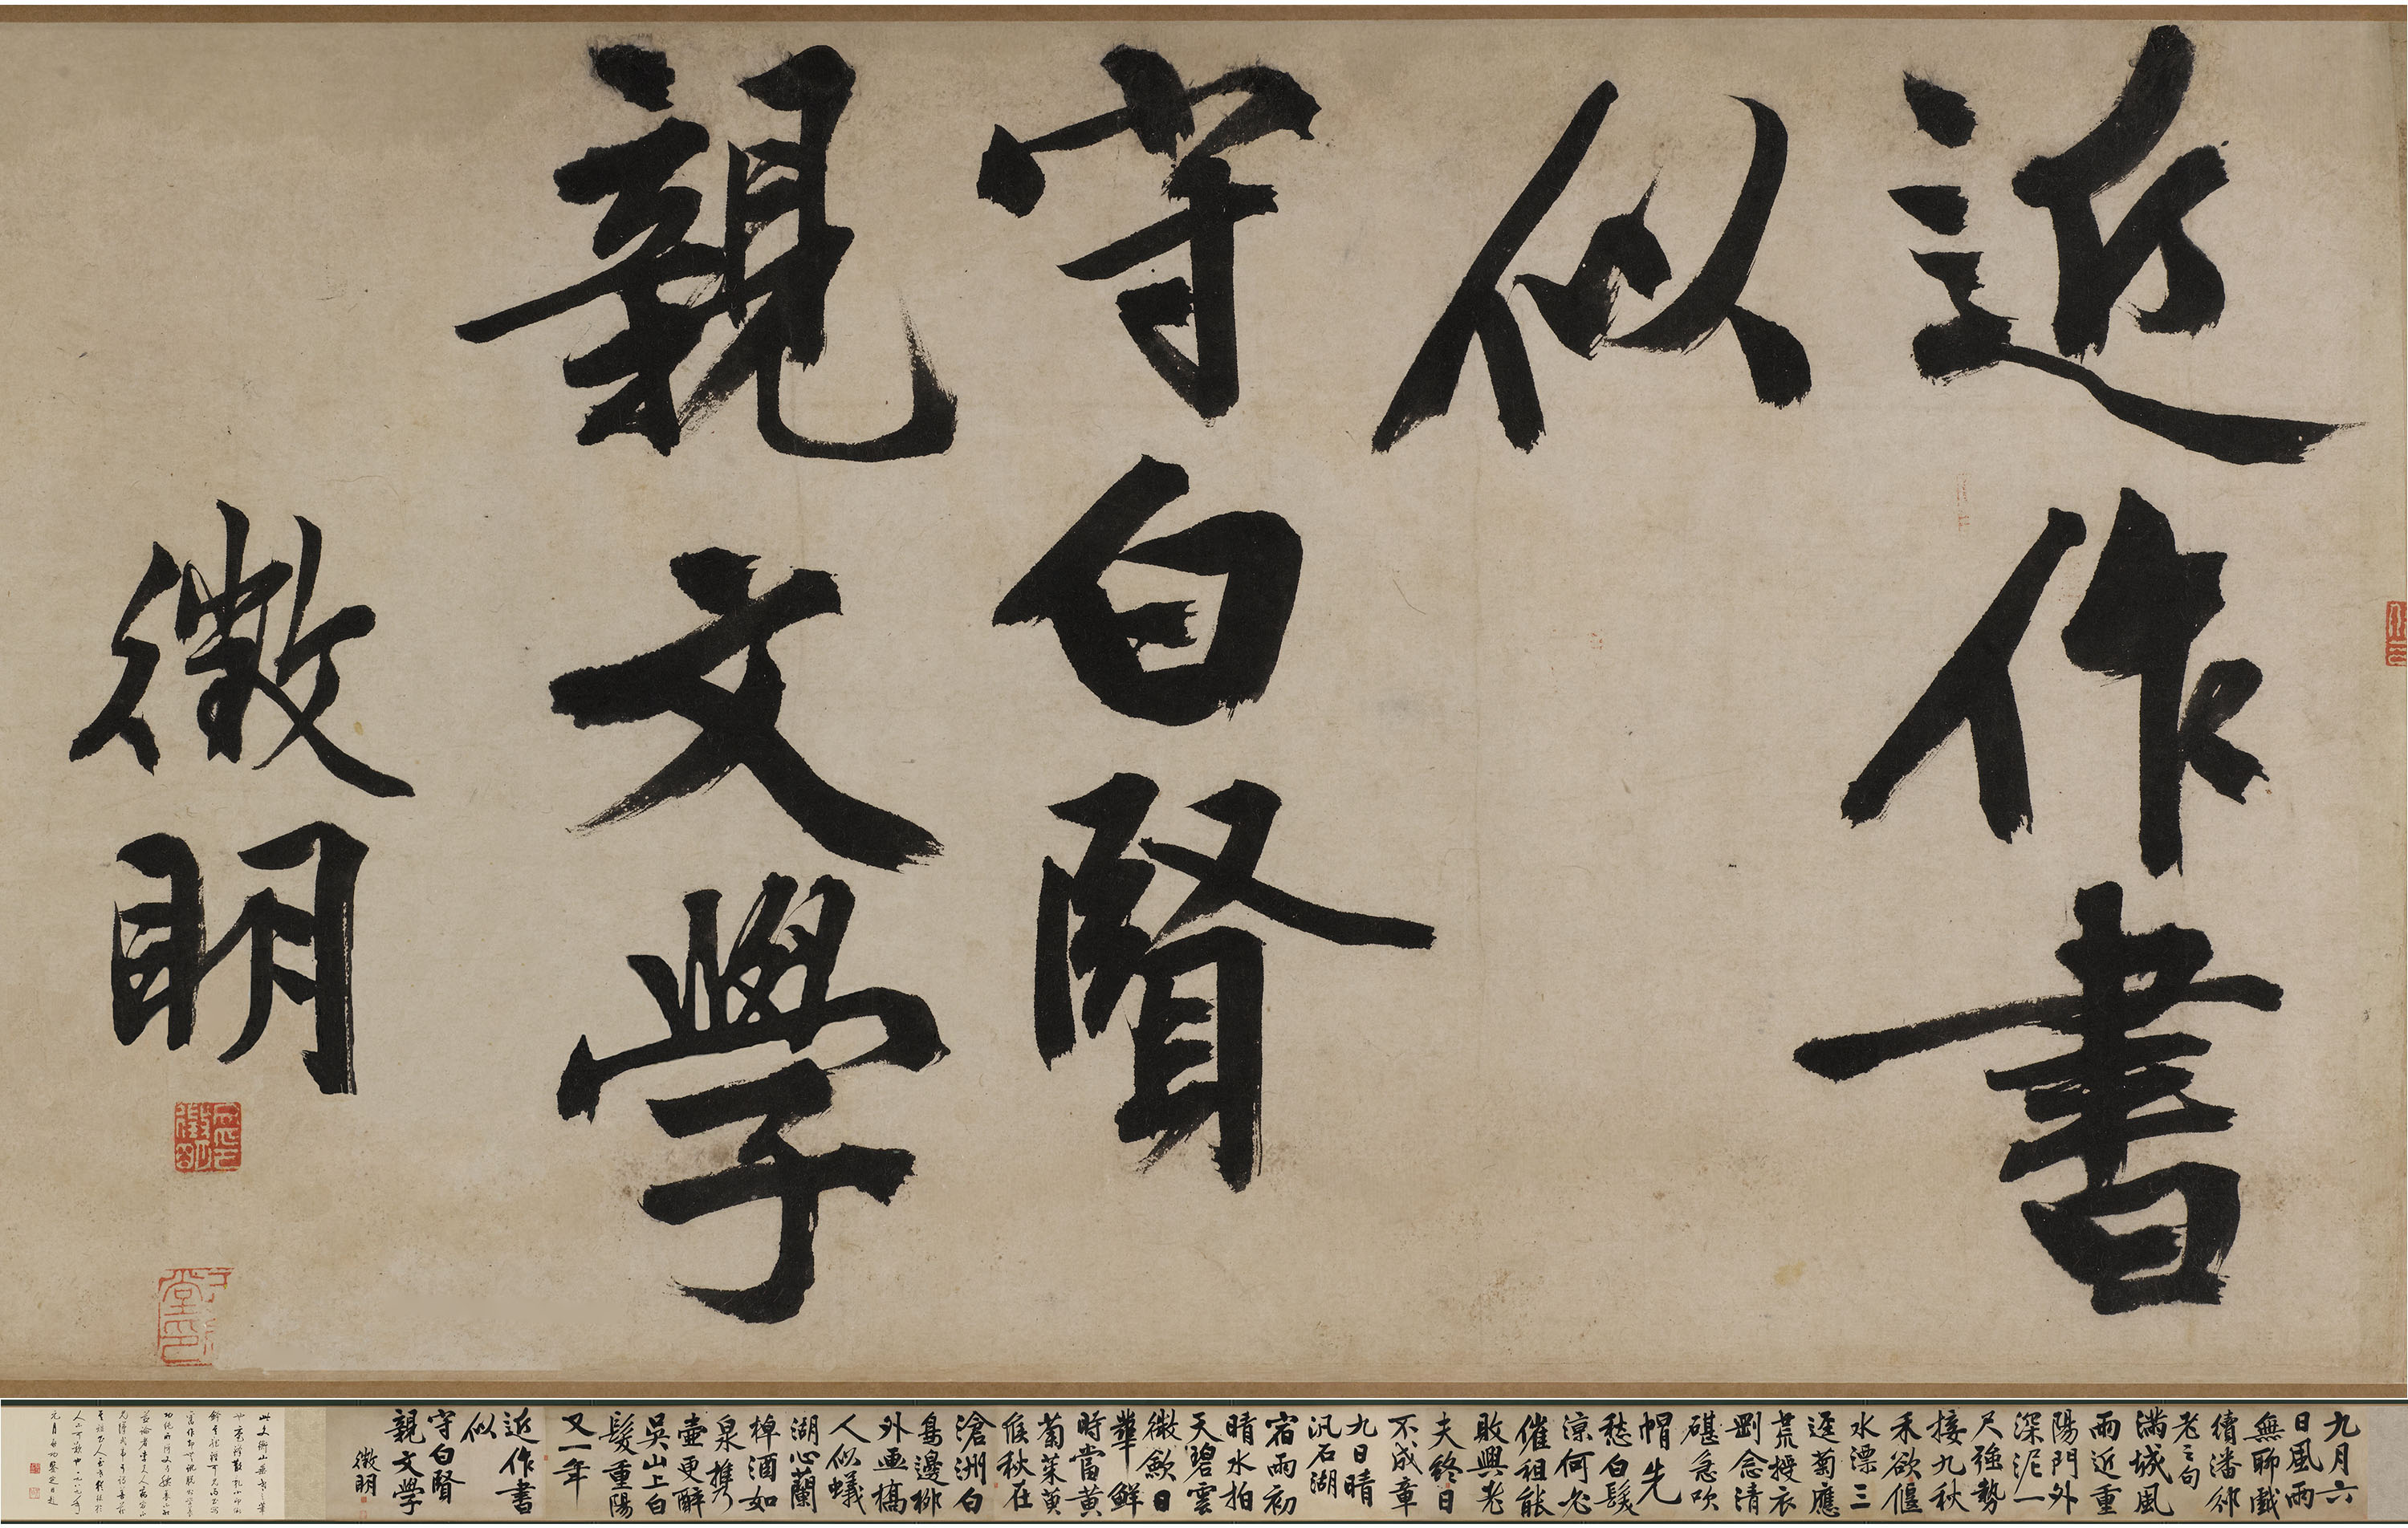 近作書
似
守白賢
親文學
徵明
九月六
日風雨
無聊戲
續潘邠
老之句
滿城風
雨近重
陽門外
深泥一
尺強勢
接九秋
禾欲偃
水漂三
逕菊應
荒授衣
剛念清
碪急吹
帽先
愁白髮
涼何必
催租能
敗興老
夫終日
不成章
九日晴
汎石湖
宿雨初
晴水拍
天碧雲
微斂日
華鮮
時當黃
菊茱萸
候秋在
滄洲白
鳥邊柳
外畫橋
人似蟻
湖心蘭
棹酒如
泉攜
壺更醉
吳山上白
髮重陽
又一年
近作書
似
守白賢
親文學
徵明